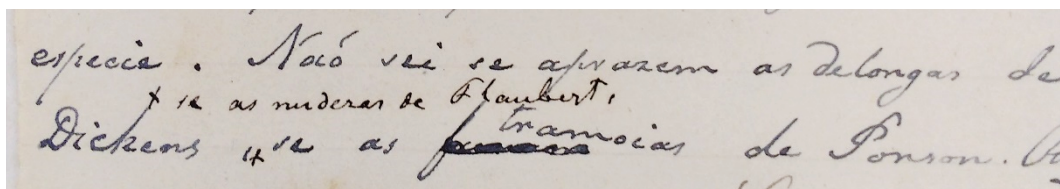 especie. Naó sei se aprazem as delongas de
+ se as nudezas de Flaubert,
Dickens, + se as tramoias de Ponson.